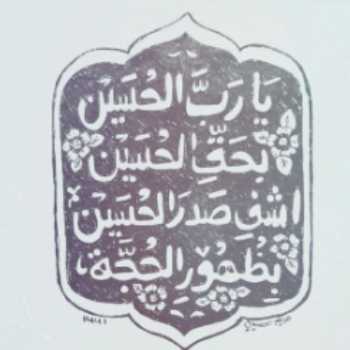 يَا رَبَّ الْحُسَيْنِ
بِحَقِّ الْحُسَيْنِ
اشْفِ صَدْرَ الْحُسَيْنِ
بِظُهُورِ الْحُجَّةِ